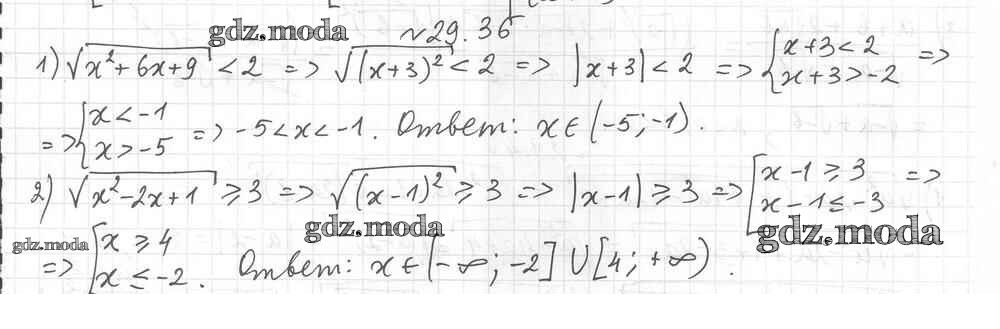 gdz.moda №29.36
1) √(x²+6x+9) < 2 => √((x+3)²) < 2 => |x+3| < 2 => { x+3 < 2
x+3 > -2 =>
=> { x < -1
x > -5 => -5 < x < -1. Ответ: x ∈ (-5; -1).
2) √(x²-2x+1) ≥ 3 => √((x-1)²) ≥ 3 => |x-1| ≥ 3 => [ x-1 ≥ 3
x-1 ≤ -3 =>
gdz.moda
gdz.moda
gdz.moda
=> [ x ≥ 4
x ≤ -2. Ответ: x ∈ (-∞; -2] ∪ [4; +∞).